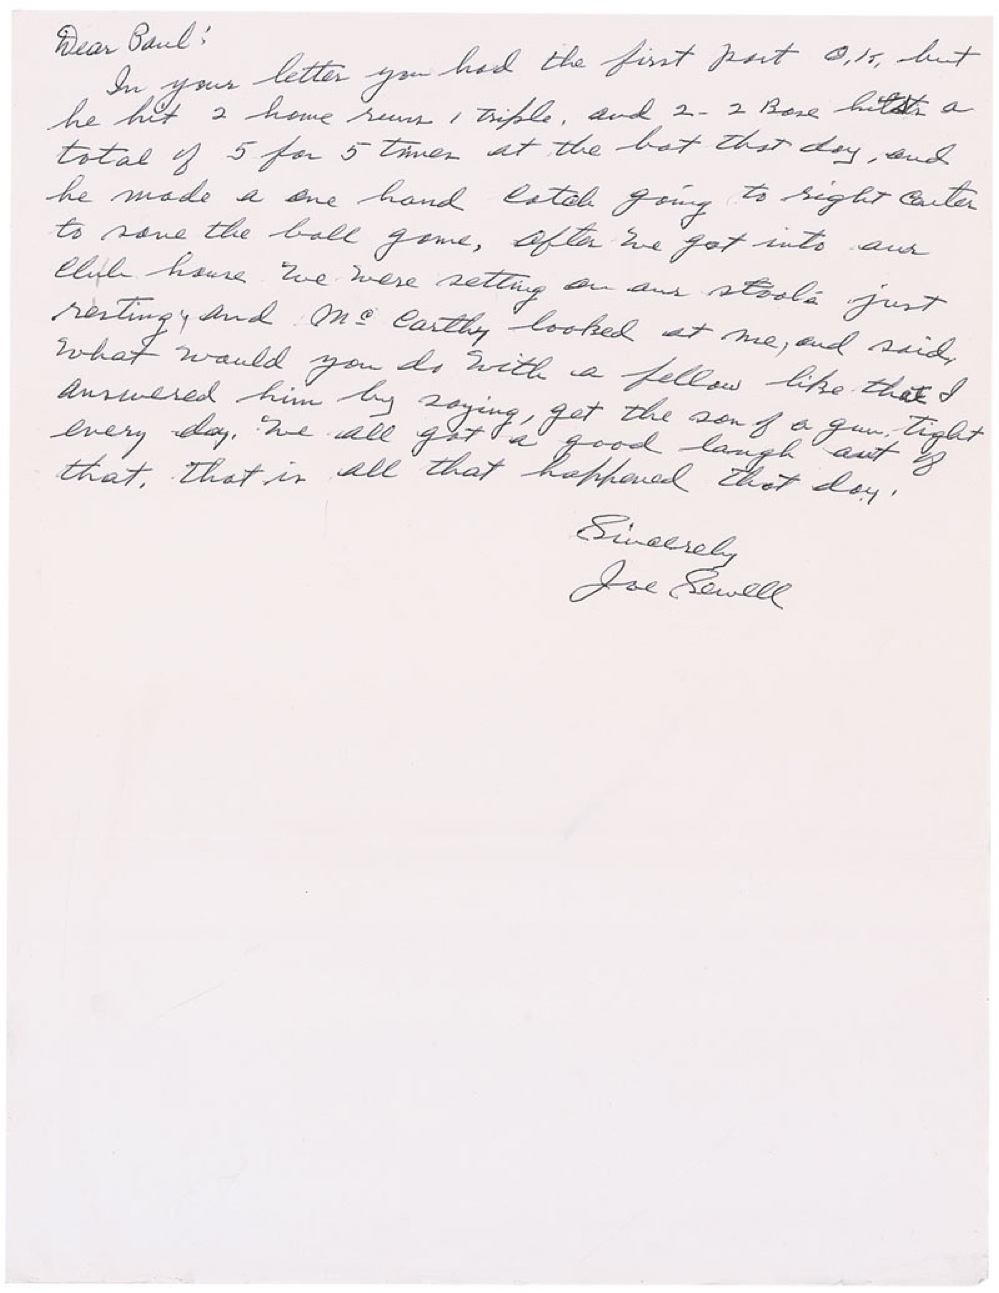 Dear Paul:
In your letter you had the first part O.K, but
he hit 2 home runs 1 triple, and 2-2 Base hits a
total of 5 for 5 times at the bat that day, and
he made a one hand catch going to right center
to save the ball game, after we got into our
Club house we were setting on our stools just
resting, and Mc Carthy looked at me, and said,
What would you do with a fellow like that I
answered him by saying, get the son of a gun, tight
every day. We all got a good laugh out of
that. That is all that happened that day.
Sincerely
Joe Sewell